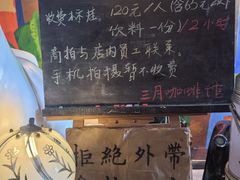 收费标准: 120元/人(含65元
饮料一份)/2小时
商拍与店内员工联系,
手机拍摄暂不收费
三月咖啡馆
拒絕外帶